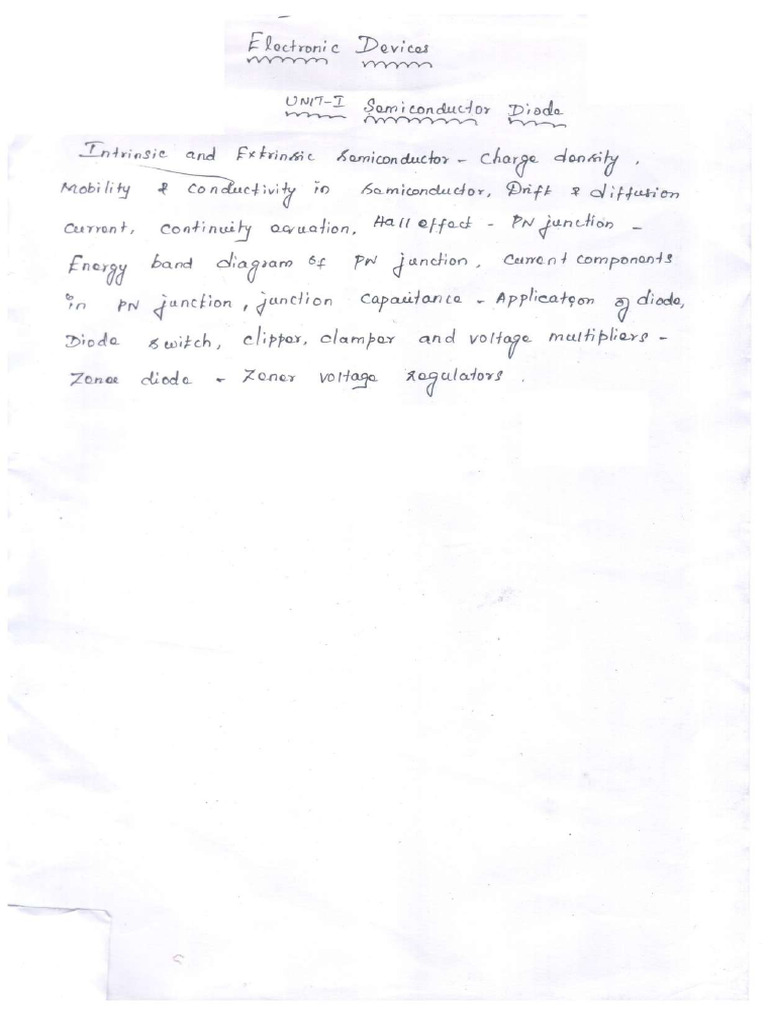 Electronic Devices
UNIT-I Semiconductor Diode
Intrinsic and Extrinsic semiconductor - Charge density,
Mobility & conductivity in semiconductor, Drift & diffusion
current, continuity equation, Hall effect - PN junction -
Energy band diagram of PN junction, current components
in PN junction, junction capacitance - Application of diode,
Diode switch, clipper, clamper and voltage multipliers -
Zener diode - Zener voltage regulators.